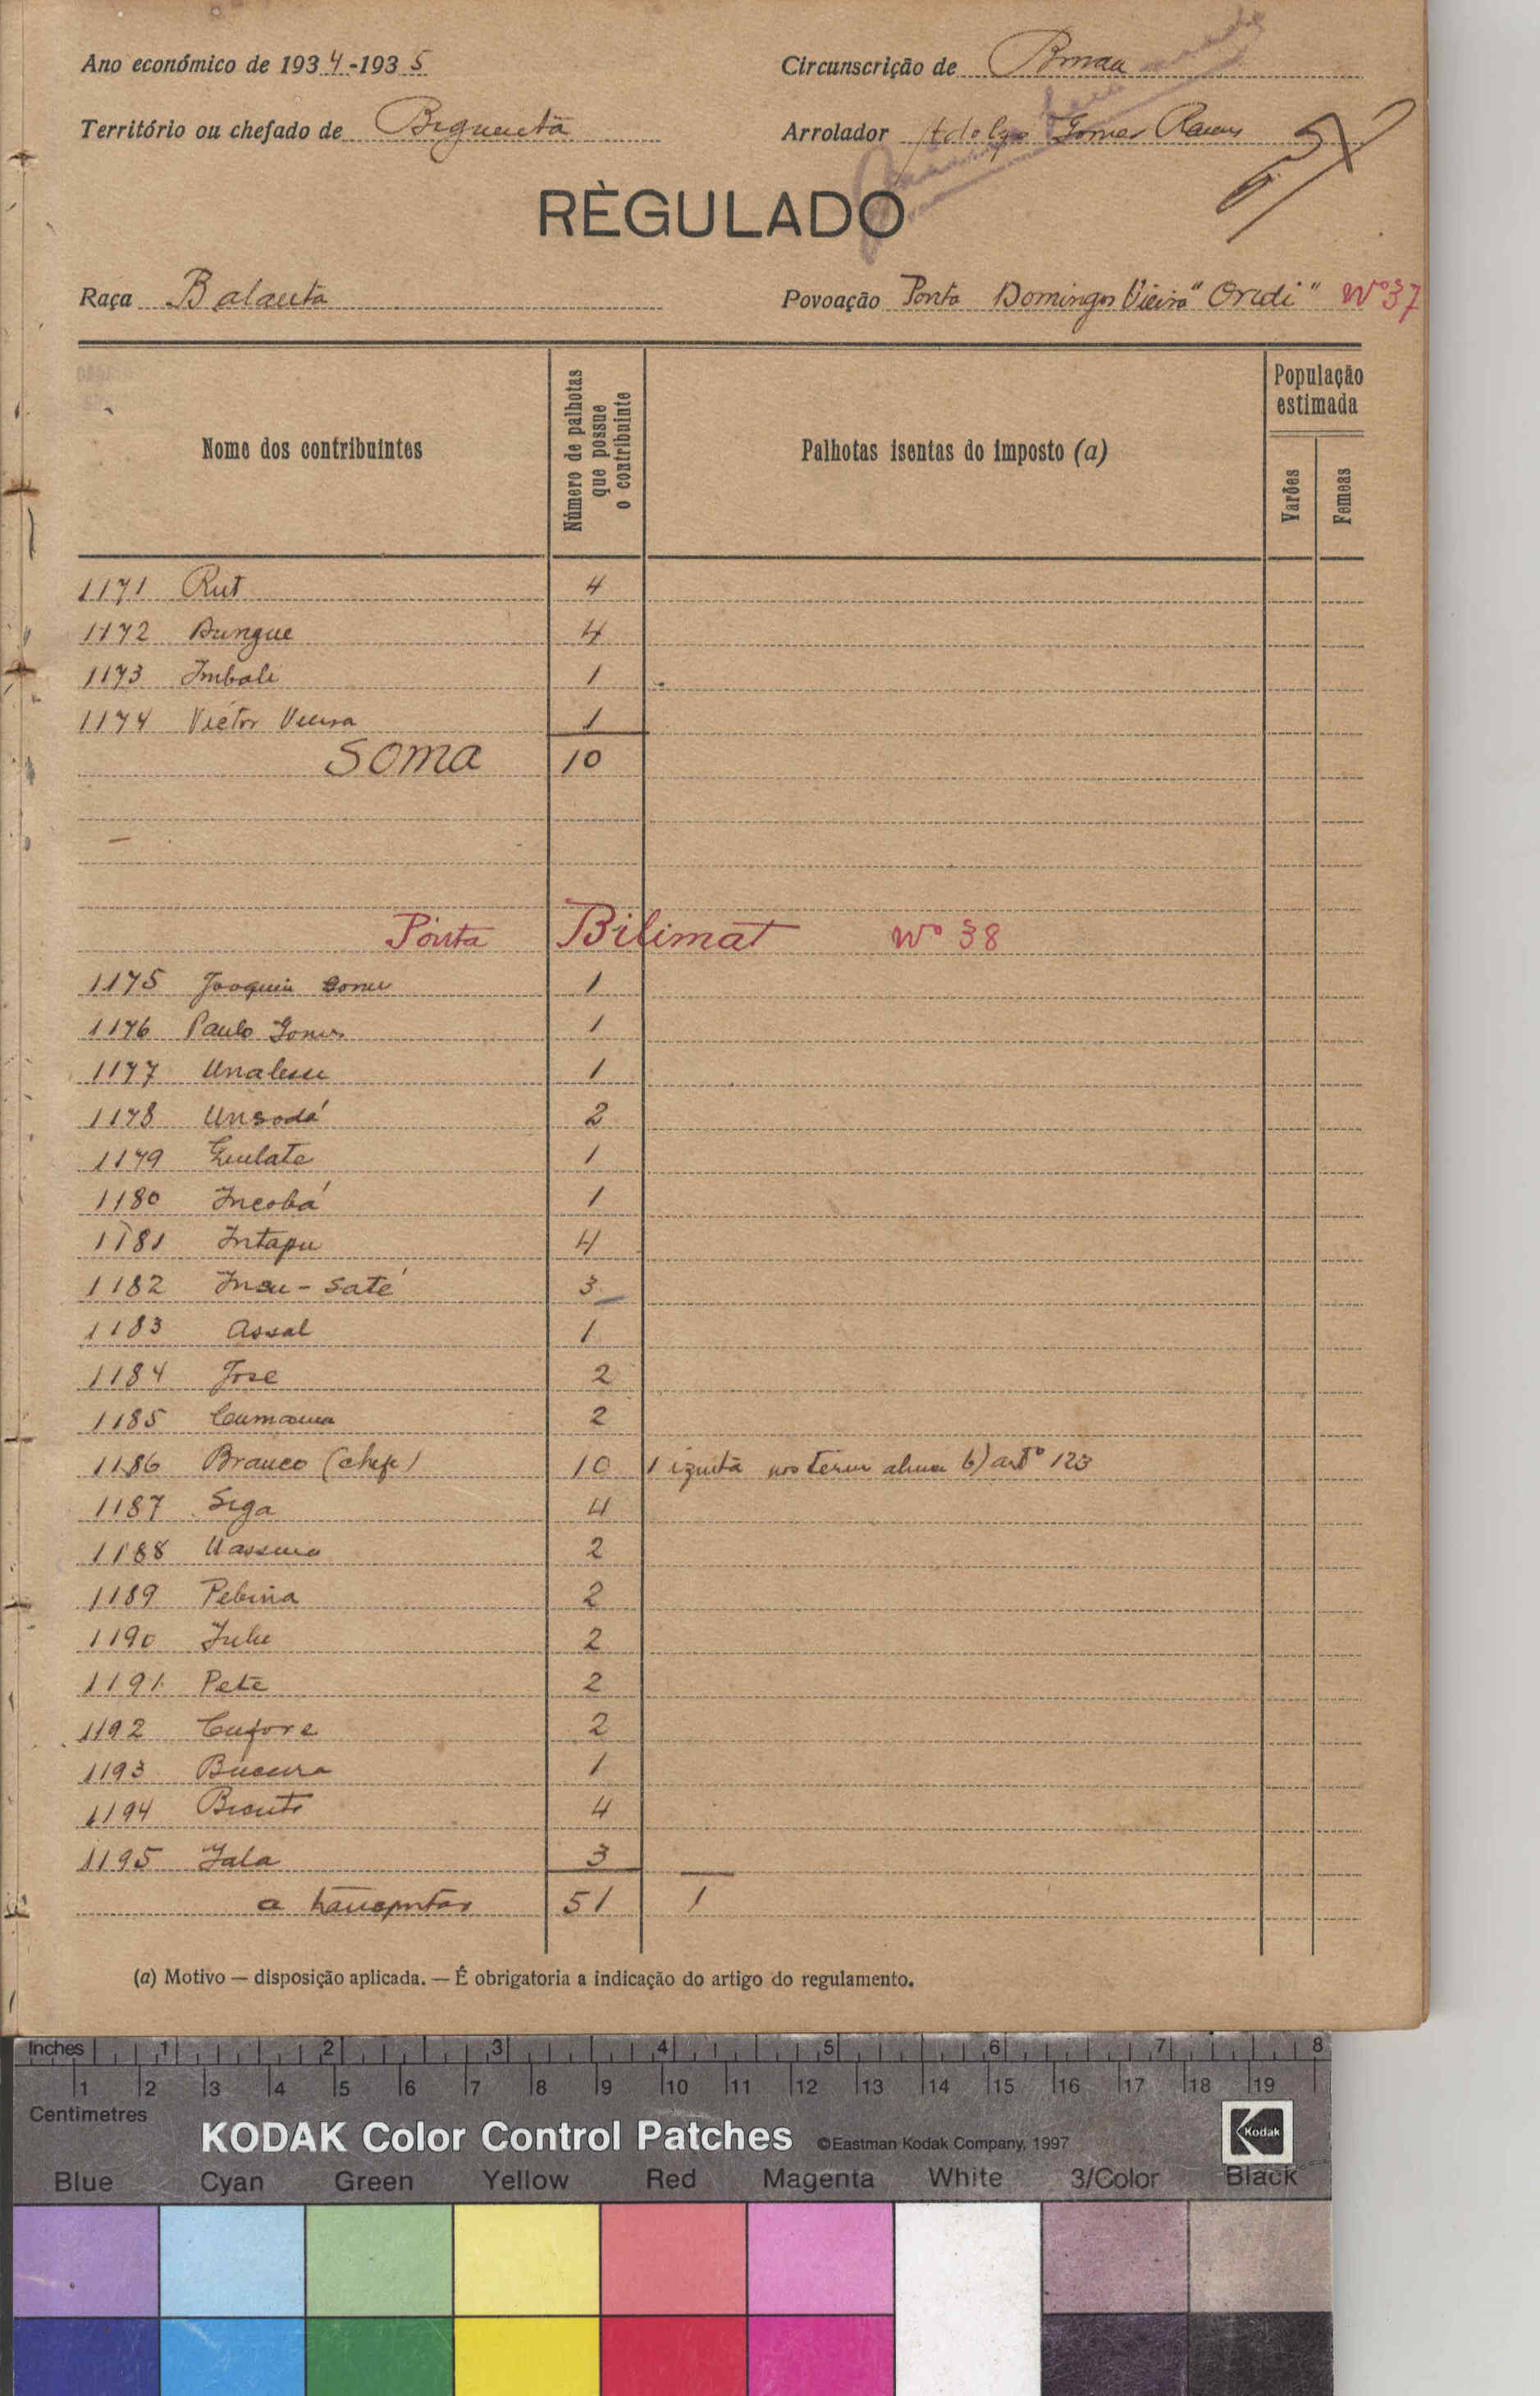 Ano económico de 1934-1935
Circunscrição de
Território ou chefado de
Arrolador Adolfo Gomes
RÈGULADO
Raça Balanta
Povoação Ponta Domingos Vieira "Orudi" Nº 37
Nome dos contribuintes
Número de palhotas que possue o contribuinte
Palhotas isentas do imposto (a)
População estimada
Varões
Femeas
1171 Rut 4
1172 Dungue 4
1173 Imbali 1
1174 Victor Vieira 1
SOMA 10
Ponta Bilimat Nº 38
1175 Joaquim Gomes 1
1176 Paulo Gomes 1
1177 1
1178 Unsodá 2
1179 1
1180 Incobá 1
1181 Intapu 4
1182 Insu-saté 3
1183 Assal 1
1184 Jose 2
1185 2
1186 Branco (chefe) 10 1 nos alinea b) artº 123
1187 Siga 4
1188 2
1189 2
1190 2
1191 Pete 2
1192 Cufore 2
1193 1
1194 4
1195 Jala 3
a transportar 51 1
(a) Motivo — disposição aplicada. — É obrigatoria a indicação do artigo do regulamento.
Inches 1 2 3 4 5 6 7 8
1 2 3 4 5 6 7 8 9 10 11 12 13 14 15 16 17 18 19
Centimetres
KODAK Color Control Patches ©Eastman Kodak Company, 1997 Kodak
Blue Cyan Green Yellow Red Magenta White 3/Color Black